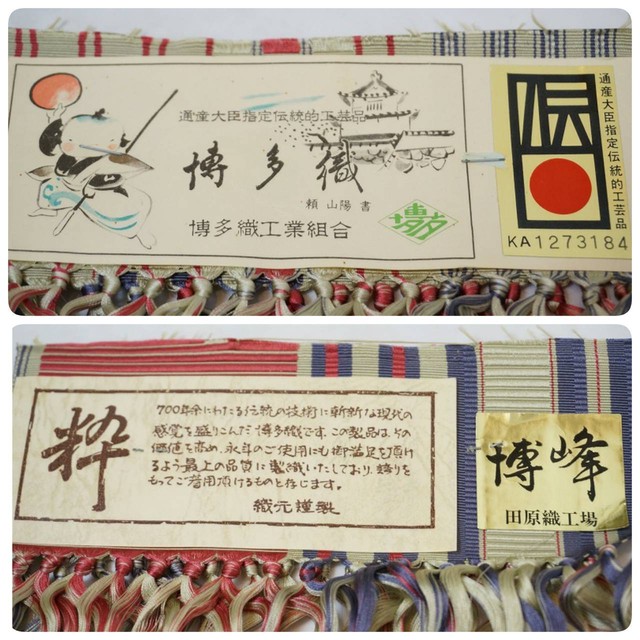 通産大臣指定伝統的工芸品
博多織
頼山陽書
博多織工業組合
博多
伝
通産大臣指定伝統的工芸品
KA1273184
粋
700年余にわたる伝統の技術に斬新な現代の
感覚を盛りこんだ博多織です。この製品は、その
価値を高め、永年のご使用にも御満足を頂け
るよう最上の品質に製織いたしており、誇りを
もってご着用頂けるものと存じます。
織元謹製
博峰
田原織工場